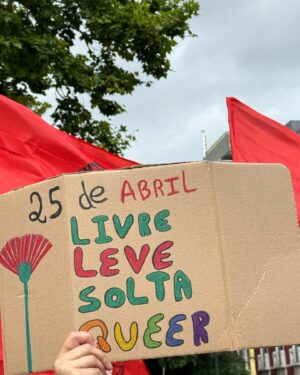 25 de ABRIL
LIVRE
LEVE
SOLTA
QUEER